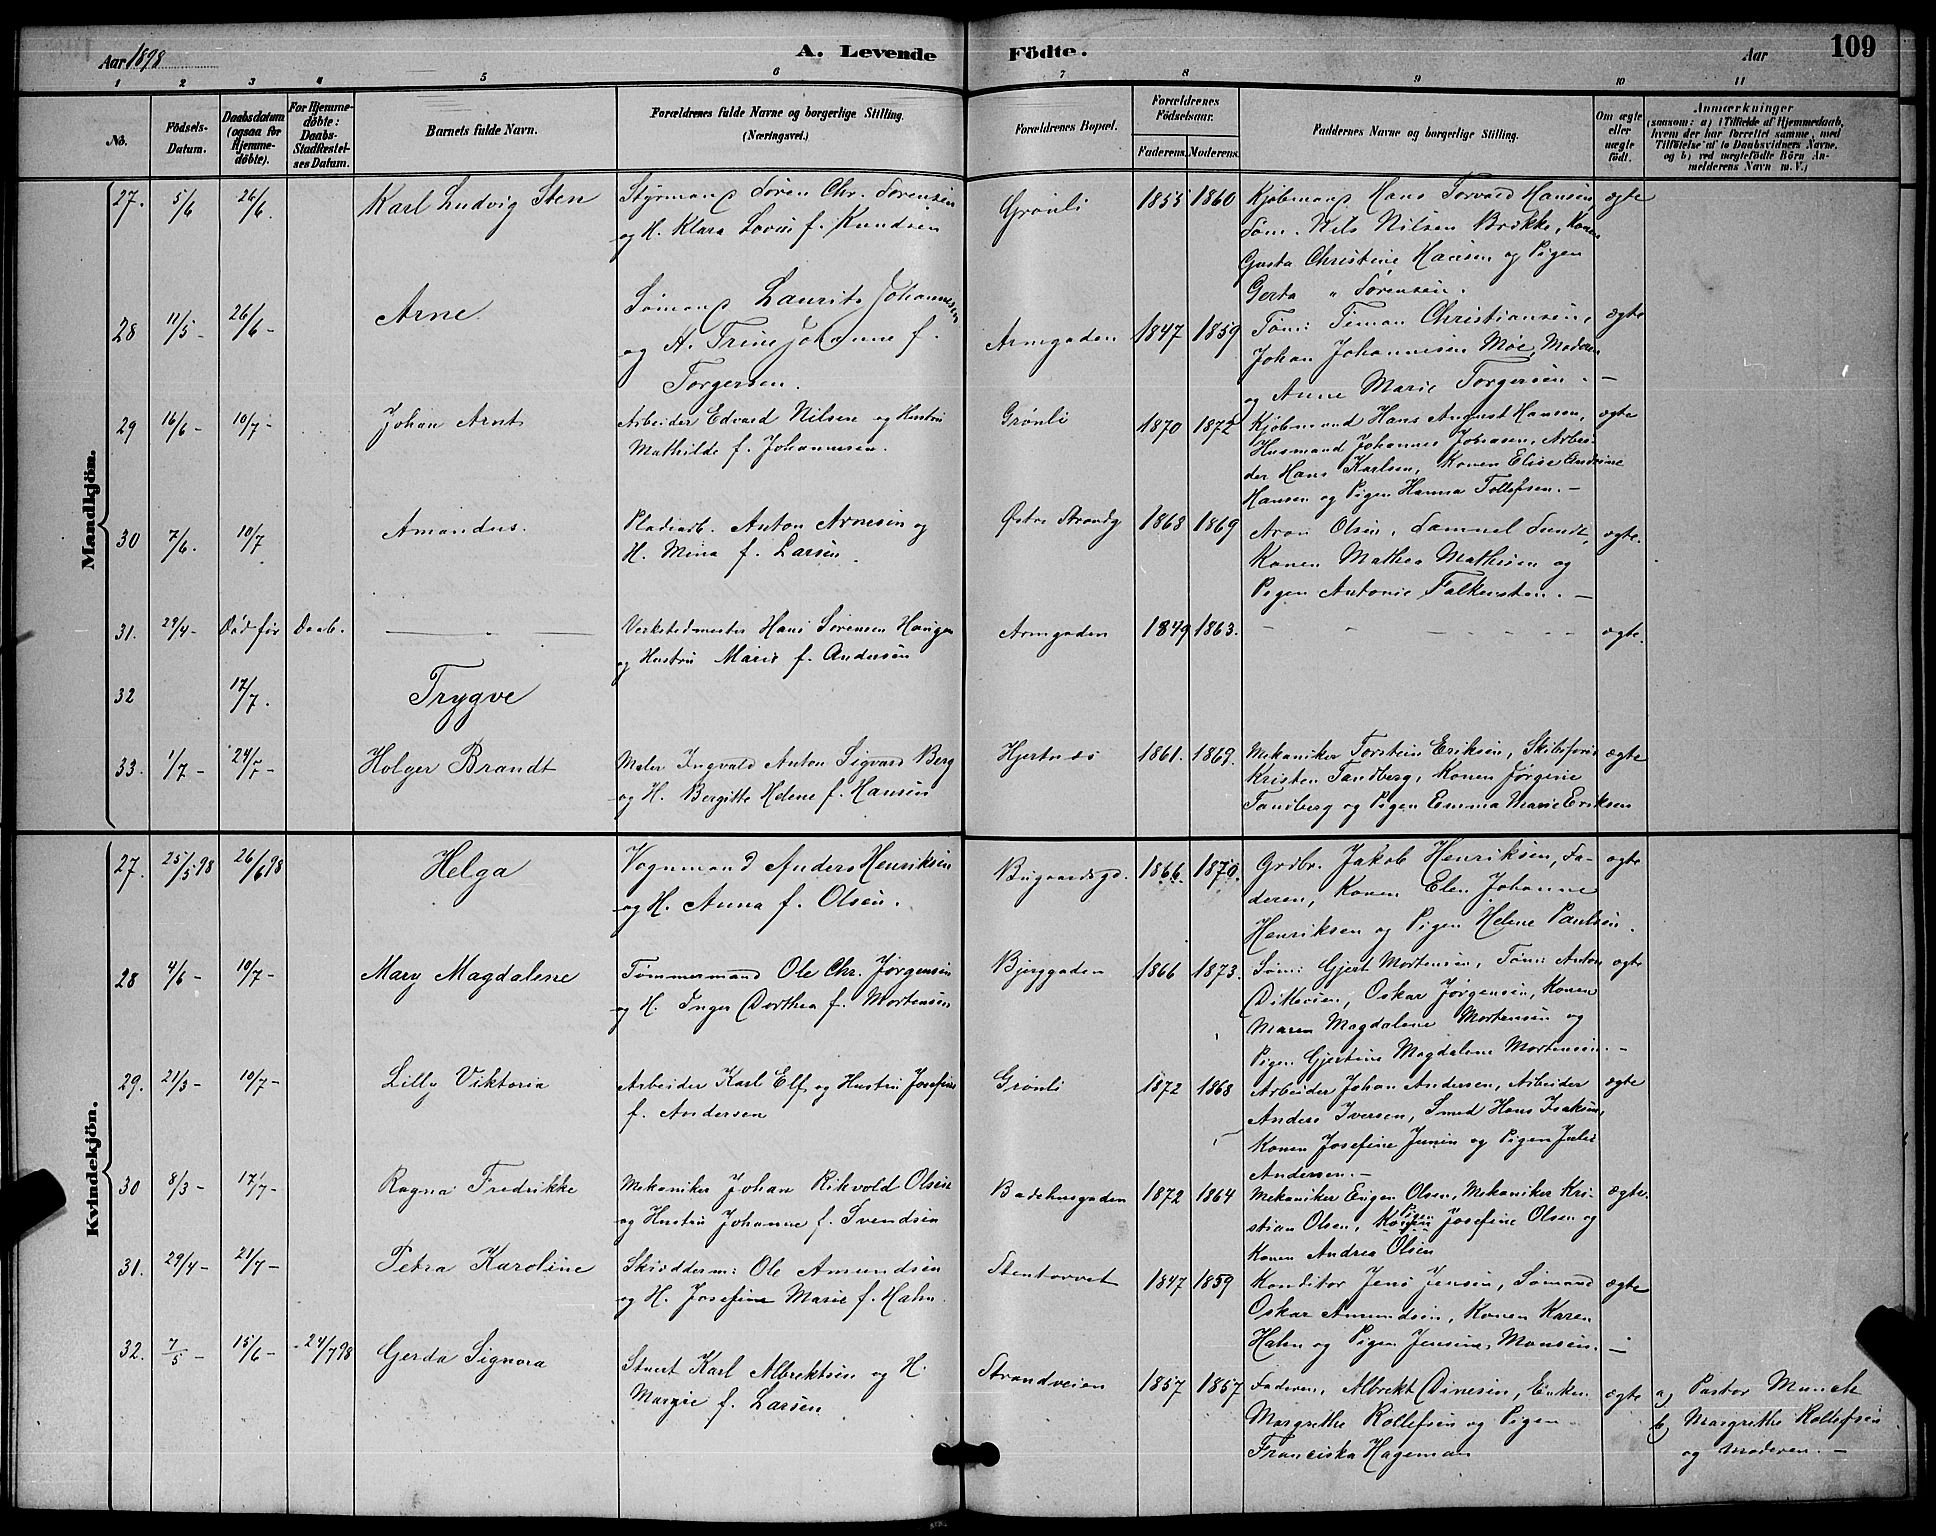 Aar 1898
A. Levende Födte.
Aar
109
1 2 3 4 5 6 7 8 9 10 11
No.
Födsels-Datum.
Daabsdatum (ogsaa for Hjemmedöbte).
For Hjemmedöbte: Daabs-Stadfæstelses Datum.
Barnets fulde Navn.
Forældrenes fulde Navne og borgerlige Stilling. (Næringsvei.)
Forældrenes Bopæl.
Forældrenes Födselsaar.
Faderens. Moderens.
Faddernes Navne og borgerlige Stilling.
Om ægte eller uægte født.
Anmærkninger
(saasom: a) i Tilfælde af Hjemmedaab, hvem der har forrettet samme, med Tilföielse af to Daabsvidners Navne, og b) ved uægtefødte Börn Anmelderens Navn m. V.)
Mandkjön.
27. 5/6 26/6. Karl Ludvig Sten
Styrmand Søren Chr. Sørensen
og H. Klara Lovise f. Knudsen
Grønli 1853 1860
Kjøbmand Hans Torvald Hansen
Søm. Nils Nilsen Brekke, Konen
Gusta Christine Hansen og Pigen
Gerta " Sørensen.
ægte
28 11/5 - 26/6 - Arne
Sømand Laurits Johannesen
og H. Trine Johanne f.
Torgersen.
Armgaden 1847 1859
Tøm: Timan Christiansen,
Johan Johannesen Moe, Moderen
og Anne Marie Torgersen. -
ægte
29 16/6 - 10/7 - Johan Arnt
Arbeider Edvard Nilsen og Hustru
Mathilde f. Johannesen.
Grønli 1870 1872
Kjøbmand Hans August Hansen,
Husmand Johannes Johnsen, Arbei-
der Hans Karlsen, Konen Elise Andrine
Hansen og Pigen Hanna Tollefsen. -
ægte
30 7/6. 10/7 Amandus.
Pladsarb. Anton Arnesen og
H. Mina f. Larsen.
Østre Strandg 1863 1869
Aron Olsen, Samuel Sundt,
Konen Mathea Mathisen og
Pigen Antonie Falkensten. -
ægte.
31. 29/4 - Død før Daab.
Verkstedmester Hans Sørensen Haugen
og Hustru Marie f. Andersen
Armgaden 1849 1863.
ægte.
32 17/7. Trygve
33. 1/7 - 24/7 - Holger Brandt
Maler Ingvald Anton Sigvard Berg
og H. Bergitte Helene f. Hansen
Hjertnæs 1861. 1869.
Mekaniker Torstein Eriksen, Skibsfører
Kristen Tandberg, Konen Jørgine
Tandberg og Pigen Emma Marie Eriksen
ægte
Kvindekjön.
27. 25/5 98 26/6 98 Helga
Vognmand Anders Henriksen
og H. Anna f. Olsen.
Bugaardsgd. 1866. 1870.
Grdbr. Jakob Henriksen, Fa-
deren, Konen Elen Johanne
Henriksen og Pigen Helene Paulsen.
ægte
28 4/6 - 10/7 - Mary Magdalene
Tømmermand Ole Chr. Jørgensen
og H. Inger Dorthea f. Mortensen
Bjerggaden 1866 1873.
Søm: Gjert Mortensen, Tøm: Anton
Ditlevsen, Oskar Jørgensen, Konen
Maren Magdalene Mortensen og
Pigen Gjertine Magdalene Mortensen. -
ægte
29. 21/3 - 10/7 - Lilly Viktoria
Arbeider Karl Elf og Hustru Josefine
f. Andersen
Grønli 1872 1868
Arbeider Johan Andersen, Arbeider
Anders Iversen, Smed Hans Isaksen,
Konen Josefine Junin og Pigen Julie
Andersen. -
ægte
30 8/3 - 17/7 - Ragna Fredrikke
Mekaniker Johan Rikvold Olsen
og Hustru Johanne f. Svendsen
Badehusgaden 1872 1864
Mekaniker Eugen Olsen, Mekaniker Kri-
stian Olsen, Pigen Josefine Olsen og
Konen Andrea Olsen
ægte.
31. 29/4 - 21/7 - Petra Karoline
Skrædderm: Ole Amundsen
og H. Josefine Marie f. Hahn.
Stentorvet 1847 1859
Konditor Jens Jensen, Sømand
Oskar Amundsen, Konen Karen
Hahn og Pigen Jensine Monsen. -
ægte
32. 7/5 - 15/6 - 24/7 98 Gerda Signora
Stuert Karl Albrektsen og H.
Margie f. Larsen
Strandveien 1857 1857
Faderen, Albrekt Dinesen, Enken
Margrethe Rollefsen og Pigen
Franciska Hageman
ægte
a) Pastor Munch
b) Margrethe Rollefsen
og Moderen. -